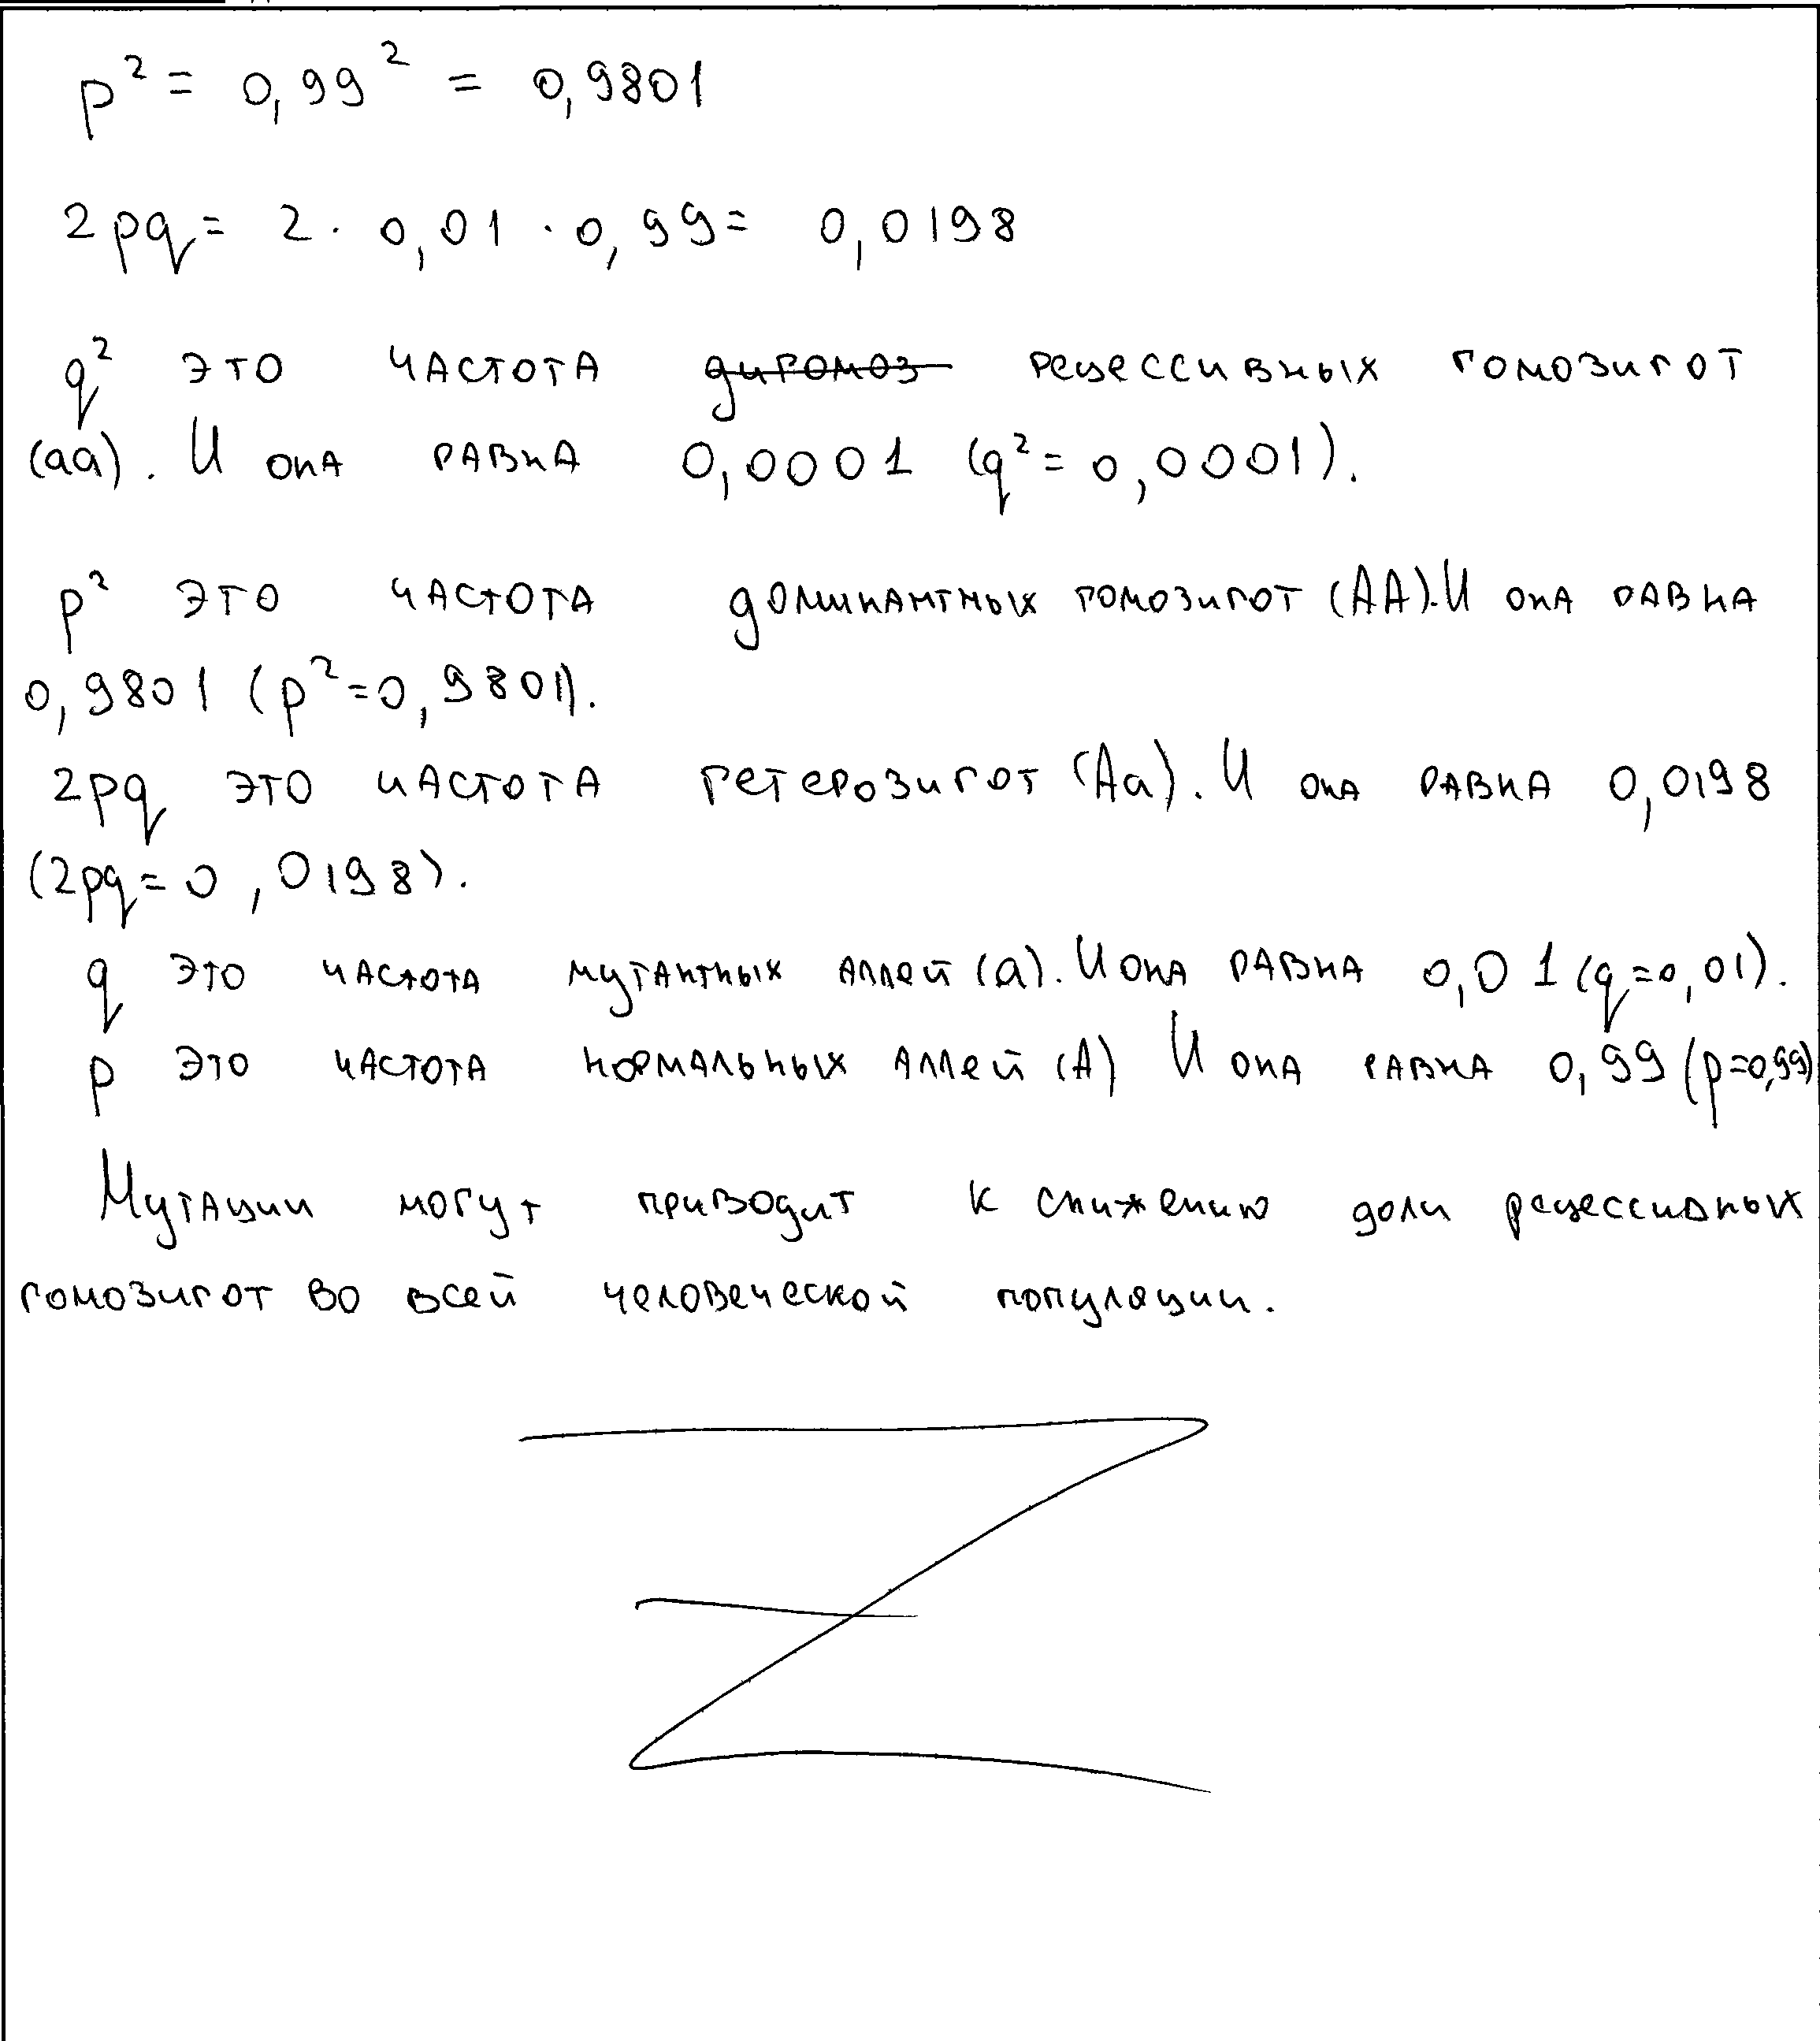 p² = 0,99² = 0,9801
2pq = 2 · 0,01 · 0,99 = 0,0198
q² это частота дигомоз рецессивных гомозигот
(aa). И она равна 0,0001 (q² = 0,0001).
p² это частота доминантных гомозигот (AA). И она равна
0,9801 (p² = 0,9801).
2pq это частота гетерозигот (Aa). И она равна 0,0198
(2pq = 0,0198).
q это частота мутантных аллей (a). И она равна 0,01 (q = 0,01).
p это частота нормальных аллей (A) И она равна 0,99 (p = 0,99)
Мутации могут приводит к снижению доли рецессивных
гомозигот во всей человеческой популяции.